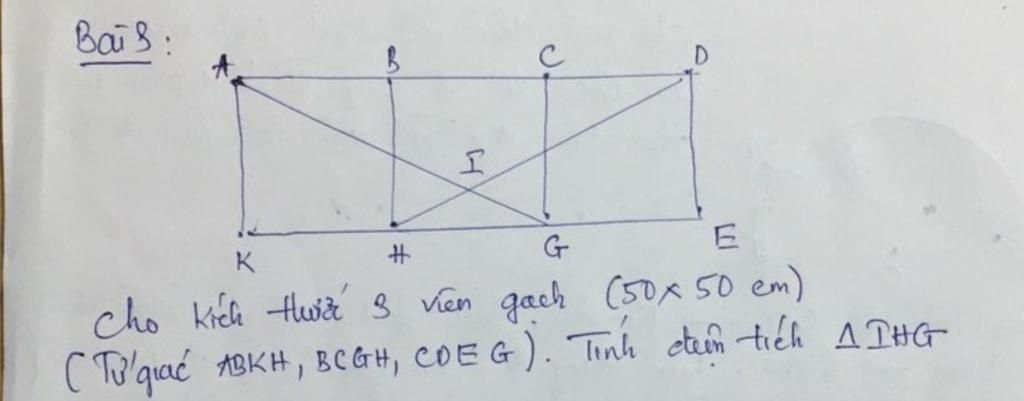 Bài 3:
A B C D
I
K H G E
Cho kích thước 3 viên gạch (50 x 50 cm)
(Tứ giác ABKH, BCGH, CDEG). Tính diện tích ΔIHG